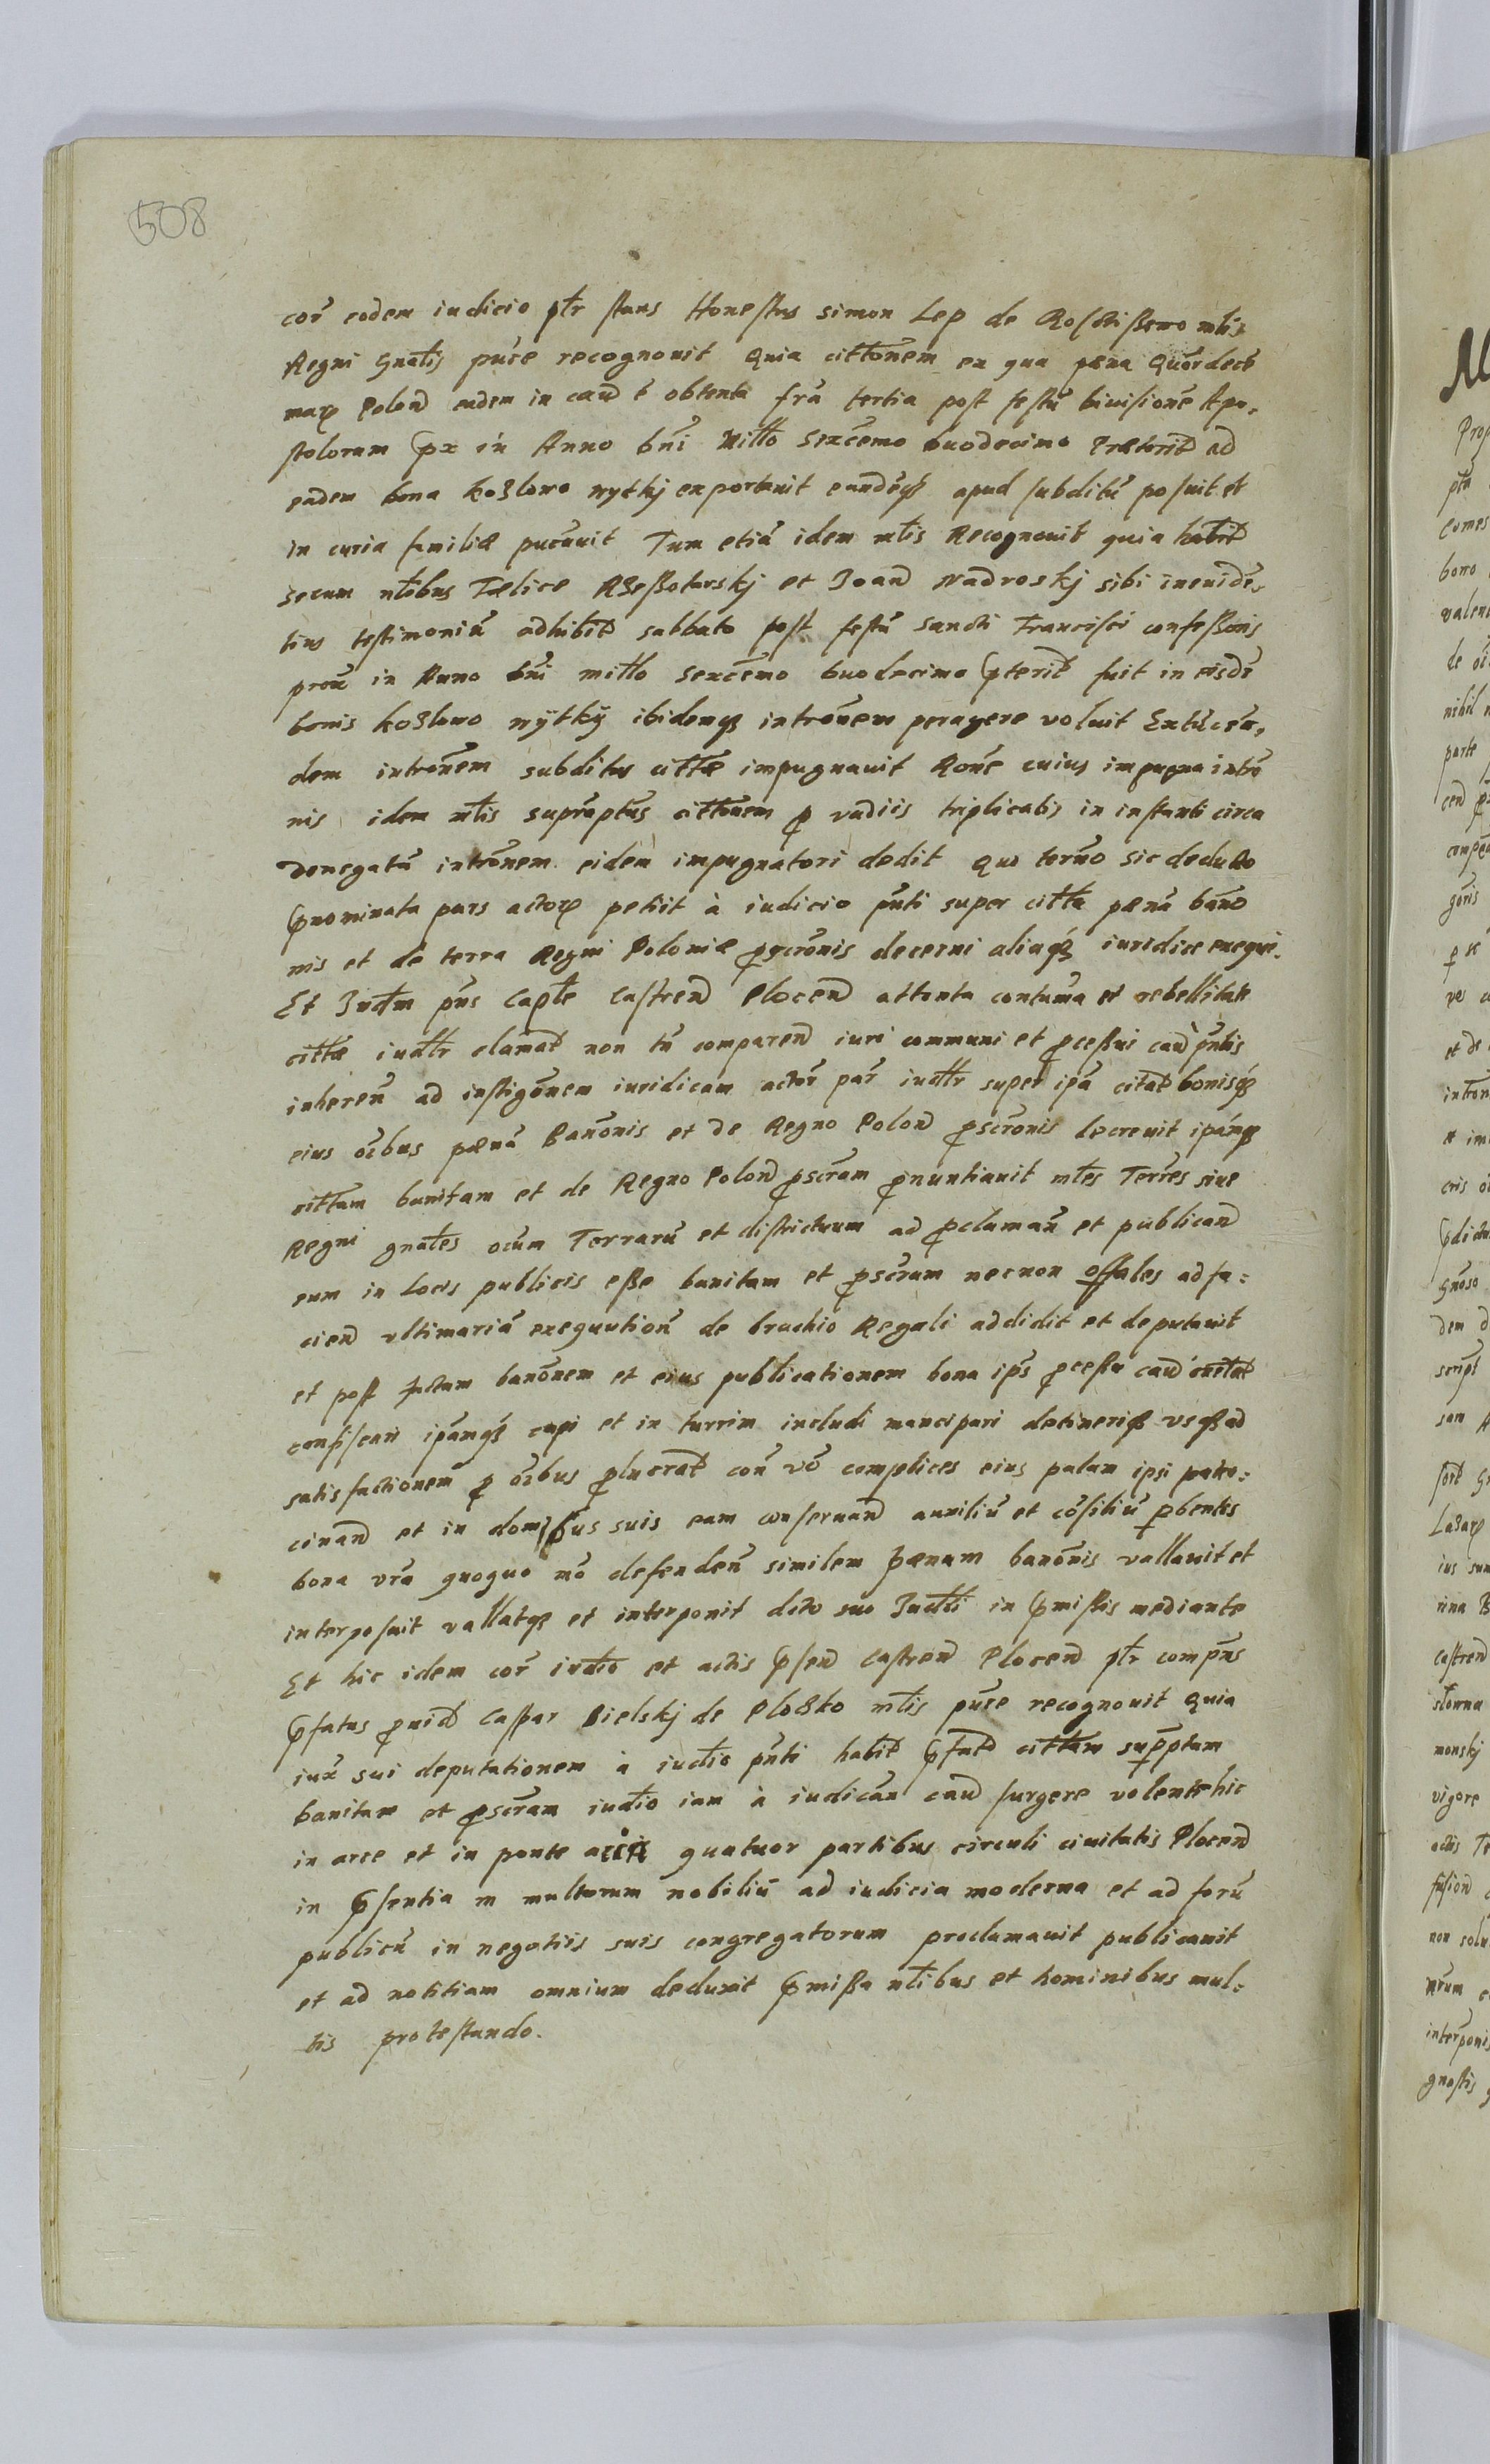 508
cor̃ eodem iudicio ptr̃ stans Honestus Simon Lep de Rosciszewo mtis
Regni Gnãlis pure recognouit Quia cittõnem ex qua pæna Quõrdecẽ
marc̃ Polon̄ eadem in cau̅ ẽ obtenta fr̃a tertia post festũ diuisionẽ Apo-
stolorum px̃ in Anno Dñi Millo Sexcẽmo Duodecimo Præterit̄ ad
eadem bona Kozlowo wytkj exportauit eandẽq̃ apud subditũ posuit et
in curia familiæ puc̃auit Tum etiã idem mtis Recognouit quia habit̄
secum ntobus Fælice et Joan̄ Nadroskj sibi in euidẽ-
tius testimoniũ adhibit̄ sabbato post festũ Sancti Francisci confessoris
prox̃ in Anno Dñi millo Sexcẽmo Duodecimo p̃terit̄ fuit in eisdẽ
bonis Kozlowo wÿtkÿ ibidemq̃ intrõnem peragere voluit
dem intrõnem subditus cittæ impugnauit Rõne cuius impugna intrõ
nis idem mtis suprap̃tus cittõnem p̱ vadiis triplicatis in instanti circa
denegatã intrõnem eidem impugnatori dedit Quo termõ sic deducto
p̃nominata pars actorę petiit à iudicio pñti super citta pænã bañõ
nis et de terra Regni Poloniæ p̱scrõnis decerni aliaq̃ iuridice exequi.
Et Judm pñs Capłe Castren̄ Plocen̄ attenta contuma et rebellitate
cittæ iudltr clamat̄ non tñ comparen̄ iuri communi et p̱cessui cau̅ pñtis
inherẽn ad instigõnem iuridicam actor̃ par̃ iudltr super ip̃a citat̄ bonisq̃
eius oĩbus pænã Banõnis et de Regno Polon̄ p̱scrõnis decreuit ipãmq̃
cittam banitam et de Regno Polon̄ p̱scr̃am p̱nuntiauit mtes Terr̃es siue
Regni gnãles oĩum Terrarũ et districtuum ad p̱claman̄ et publican̄
eum in locis publicis esse banitam et p̱scr̃am necnon offales ad fa-
cien̄ vltimariã exequutionẽ de brachio Regali addidit et deputauit
et post factam banõnem et eius publicationem bona ips̃ p̱cessu cau̅ citat̄
confiscari ipãmq̃ capi et in turrim includi mancipari detineriq̃ vsq̃ ad
satisfactionem p̱ oĩbus p̱lucrat̄ con̄ võ complices eius palam ipsi patro-
cinan̄ et in domibus suis eam conseruan̄ auxiliũ et cõsiliũ p̱bentes
bona vr̃a quoquo mõ defenden̄ similem pænam banõnis vallauit et
interposuit vallatq̃ et interponit dicto suo Judlli in p̃missis mediante
Et hic idem cor̃ iudio et actis p̃sen̄ Castren̄ Plocen̄ ptr̃ compñs
p̃fatus p̱uid̄ Caspar Bielskj de Plocko mtis pure recognouit Quia
iux̃ sui deputationem à iudio pñti habit̄ p̃fat̄ cittam sup̱p̃tam
banitam et p̱scr̃am iudio iam à iudicãn cau̅ surgere volente hic
in arce et in ponte quatuor partibus circuli ciuitatis Plocen̄
in p̃sentia m multorum nobiliũ ad iudicia moderna et ad forũ
publicũ in negotiis suis congregatorum proclamauit publicauit
et ad notitiam omnium deduxit p̃missa ntibus et hominibus mul-
tis protestando.